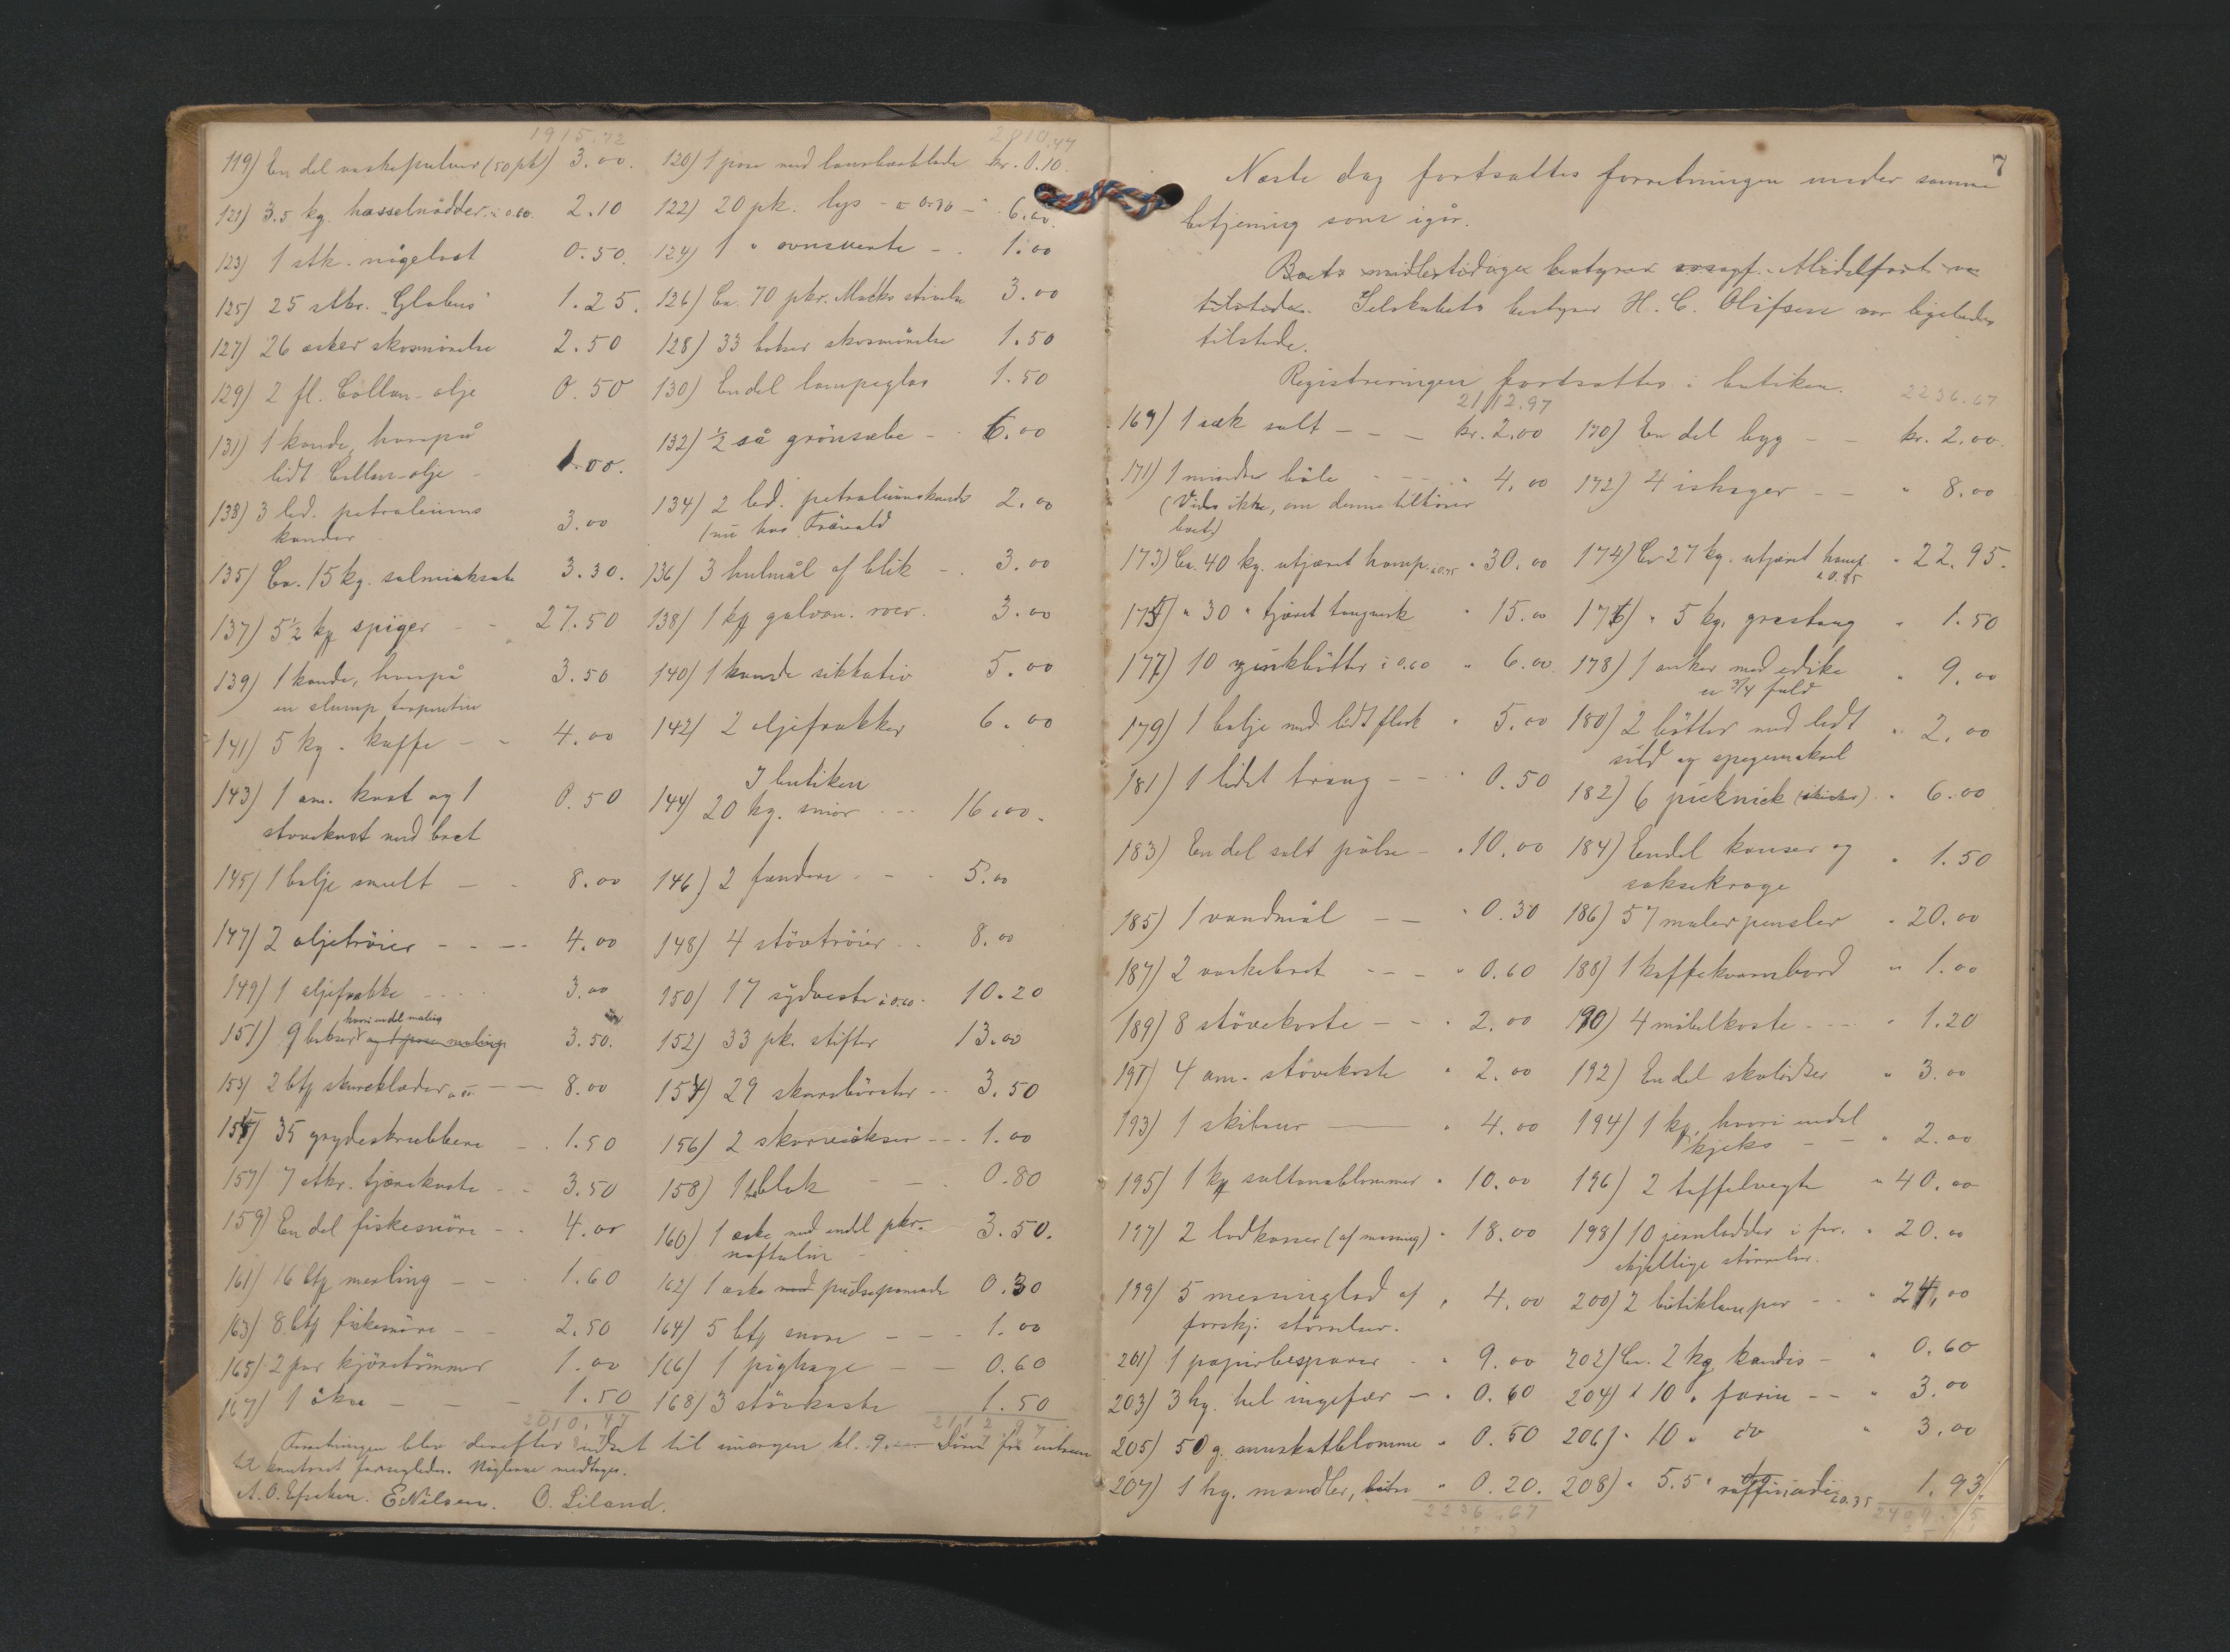 1915.72
119) En del vaskepulver (50 pk) 3.00.
121) 3.5 kg. hasselnødder à 0.60. 2.10
123) 1 stk. nøgelost 0.50.
125) 25 stkr. "Globus" 1.25.
127) 26 æsker skosmörelse 2.50
129) 2 fl. Collan-olje 0.50
131) 1 kande, hvorpå
lidt Collan-olje - 1.00.
133) 3 led. petroleums
kander 3.00
135) Ca. 15 kg. salmiaksæbe 3.30.
137) 5½ kg spiger - - 27.50
139) 1 kande, hvorpå 3.50
en slump terpentin
141) 5 kg. kaffe - - 4.00
143) 1 am. kost og 1 0.50
stovekost med bret
145) 1 balje smult - - 8.00
147) 2 oljetröier - - - 4.00
149) 1 oljefrakke - - - 3.00
hvori endel maling
151) 9 bokser og 1 pose maling 3.50.
153) 2 btg skureklæder - 8.00
155) 35 grydeskrubbere - 1.50
157) 7 stkr. tjærekoste - - 3.50
159) En del fiskesnöre - - 4.00
161) 16 btg merling - - 1.60
163) 8 btg fiskesnöre - - 2.50
165) 2 par kjöretömmer 1.00
167) 1 økse - - - 1.50
2010.47
2010.47
120) 1 pose med laurbærblade kr. 0.10
122) 20 pk. lys - à 0.30 - 6.00
124) 1 " ovnsværte - 1.00
126) Ca. 70 pkr. Macks stivelse 3.00
128) 33 bokser skosmörelse 1.50
130) Endel lampeglas 1.50
132) ½ så grönsæbe - 6.00
134) 2 led. petroleumskander 2.00
136) 3 hulmål af blik - 3.00
138) 1 kg galvan. 3.00
140) 1 kande sikkativ 5.00
142) 2 oljefrakker 6.00
I butiken
144) 20 kg. smör - - 16.00.
146) 2 fendere - - - 5.00
148) 4 stövtröier - - 8.00
150) 17 sydveste à 0.60. 10.20
152) 33 pk. stifter 13.00
154) 29 skurebörster - - 3.50
156) 2 - - - 1.00
158) 1 blok - - - 0.80
160) 1 æske med endel pkr. 3.50.
naftalin -
162) 1 æske med pudsepomade 0.30
164) 5 btg snøre - - - 1.00
166) 1 pighage - - 0.60
168) 3 stövkoste 1.50
2112.97
Forretningen blev derefter udsat til imorgen kl. 9. Dören fra entreen
til kontoret forsegledes. Nøglerne medtoges.
E. Nilsen. O. Liland.
7
Næste dag fortsattes forretningen under samme
betjening som igår.
Boets midlertidige bestyrer sagf. Midelfart var
tilstede. Selskabets bestyrer H. C. Olufsen var ligeledes
tilstede.
Registreringen fortsattes i butiken.
2112.97
169) 1 sæk salt - - - kr. 2.00
171) 1 mindre båle - - - " 4.00
(Vides ikke, om denne tilhörer
boet)
173) Ca. 40 kg. utjæret hamp. à 0.75 " 30.00
175) " 30 " tjæret taugverk " 15.00
177) 10 zinkbøtter à 0.60 " 6.00
179) 1 balje med lidt flesk " 5.00
181) 1 lidet traug - - " 0.50
183) En del salt pölse - " 10.00
185) 1 vandmål - - " 0.30
187) 2 vaskebret - - - " 0.60
189) 8 stövekoste - - " 2.00
191) 4 am. stövekoste " 2.00
193) 1 - " 4.00
195) 1 kg sultanablommer " 10.00
197) 2 lodkasser (af messing) " 18.00
199) 5 messinglod af " 4.00
forskj. størrelser.
201) 1 papirbesparer - " 9.00
203) 3 hg. hel ingefær - " 0.60
205) 50 g. muskatblomme " 0.50
207) 1 hg. mandler, bitre " 0.20.
2236.67
2236.67
170) En del byg - - kr. 2.00.
172) 4 ishager - - " 8.00
174) Ca 27 kg. utjæret hamp " 22.95.
à 0.85
176) " 5 kg. grastaug " 1.50
178) 1 anker med edike " 9.00
er 3/4 fuld
180) 2 bøtter med lidt " 2.00
sild og spegemakrel
182) 6 picknick (skinker) " 6.00
184) Endel kauser og " 1.50
saksekroge
186) 57 malerpensler " 20.00
188) 1 kaffekvernbord " 1.00
190) 4 möbelkoste - - " 1.20
192) En del skolidser " 3.00
194) 1 kg, hvori endel
kjeks - - " 2.00
196) 2 taffelvegte " 40.00
198) 10 jernlodder i for- " 20.00
skjellige størrelser.
200) 2 butiklamper - - " 24.00
202) Ca. 2 kg kandis - " 0.60
204) " 10 " farin - - " 3.00
206) " 10 " do " 3.00
208) " 5.5 " raffinade à 0.35 1.93